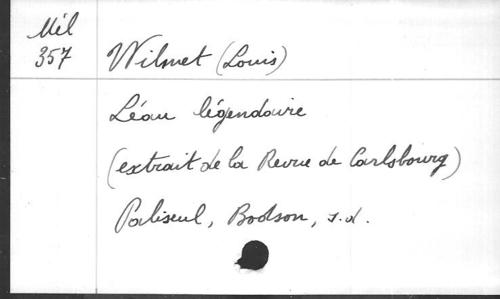 Mél
357
Wilmet (Louis)
Léau légendaire
(extrait de la Revue de Carlsbourg)
Paliseul, Bodson, s.d.